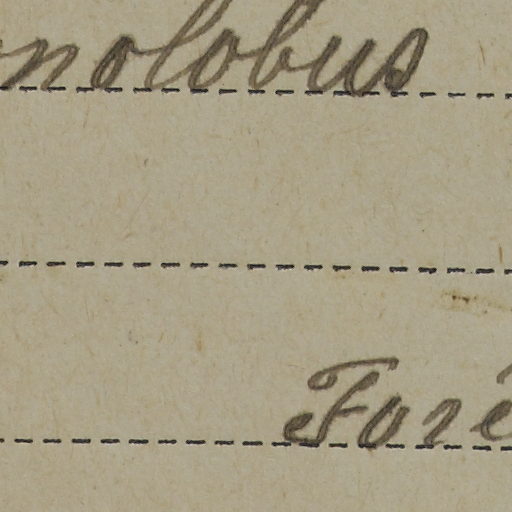 nolobus
Fore